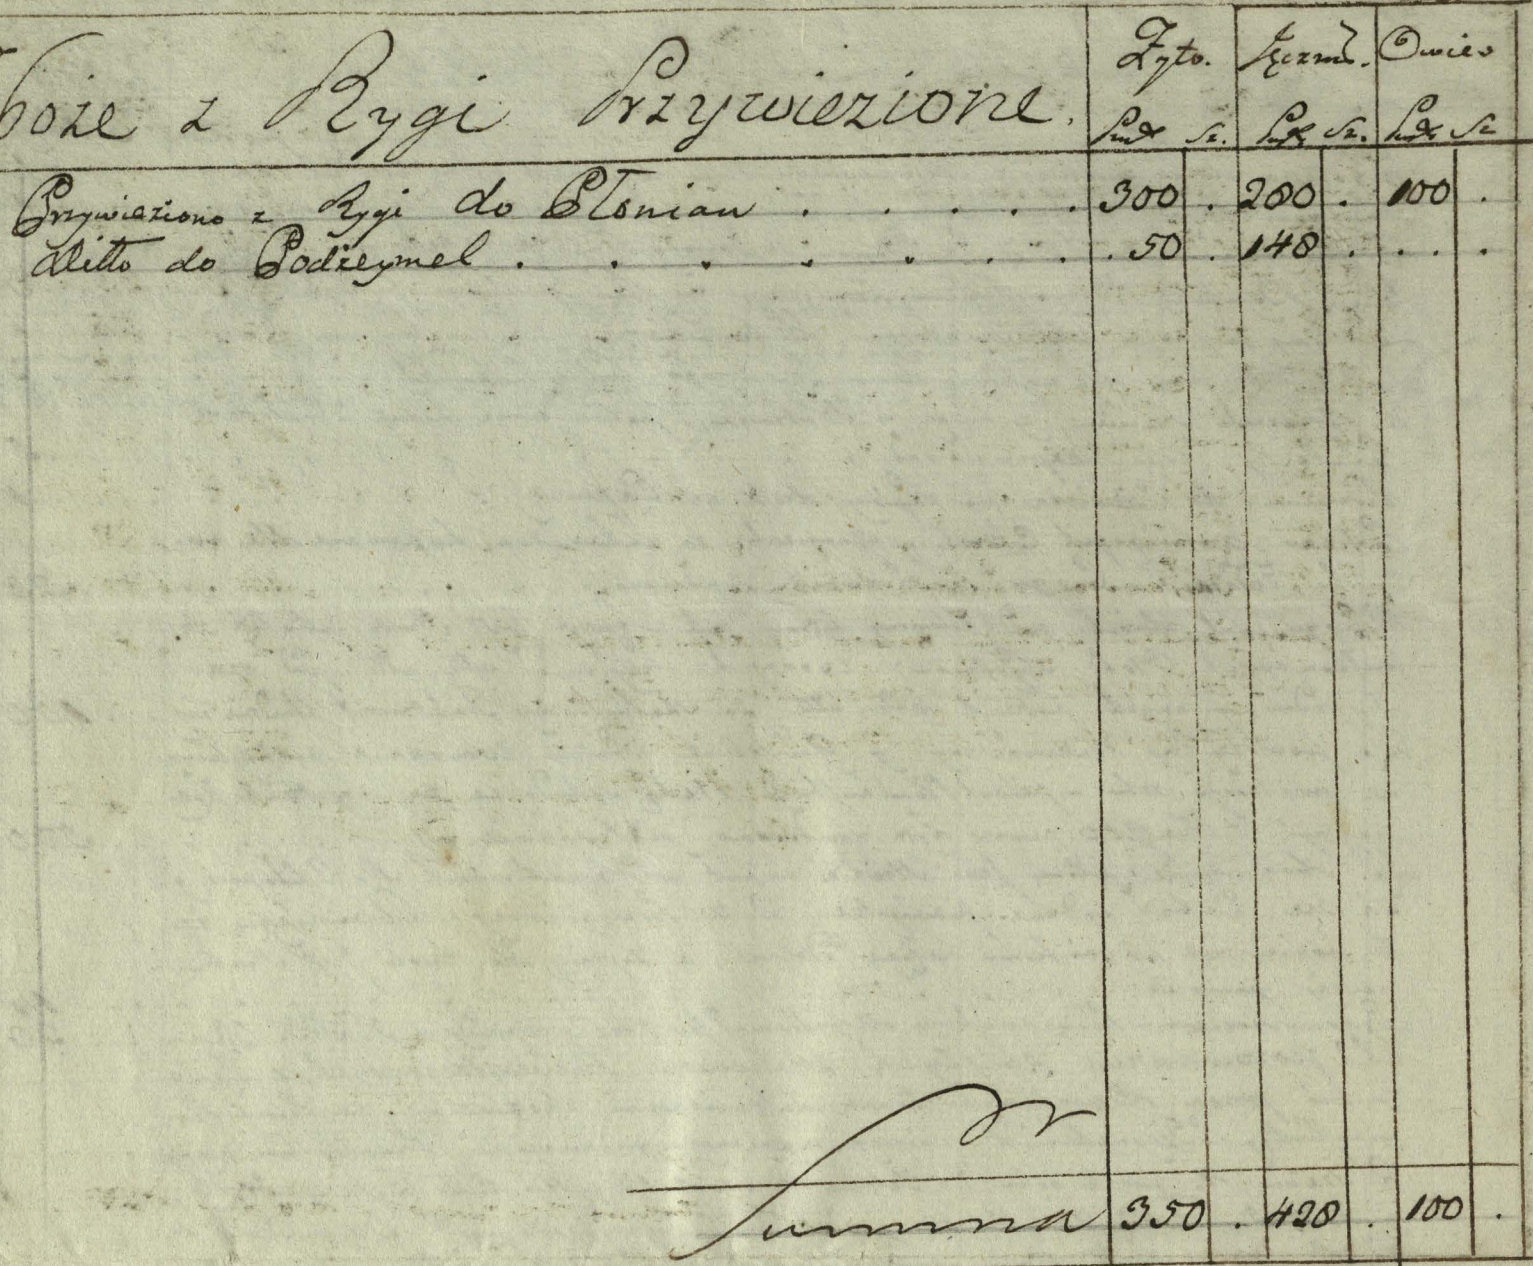 boże z Rygi Przywiezione. Żyto. Jęczmń. Owies
Sz. Sz. Sz
Przywieziono z Rygi do Płonian . . . . . 300 . 280 . 100 .
ditto do Podżeymel . . . . . . . . 50 . 148 . . . .
Summa 350 . 428 . 100 .